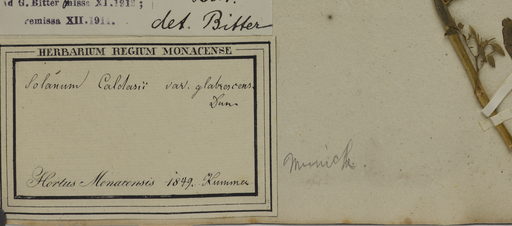 ad G. Bitter missa XI.1912;
remissa XII.191
det. Bitter
HERBARIUM REGIUM MONACENSE
Solanum Caldasii var. glabrescens.
Dun.
Hortus Monacensis 1849. Kummer
Munich.